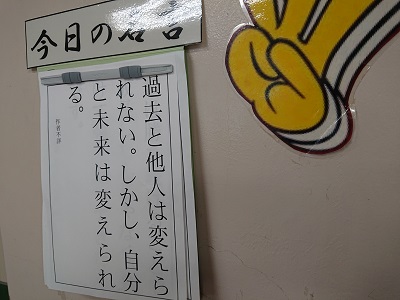 今日の名言
過去と他人は変えら
れない。しかし、自分
と未来は変えられ
る。
作者不詳